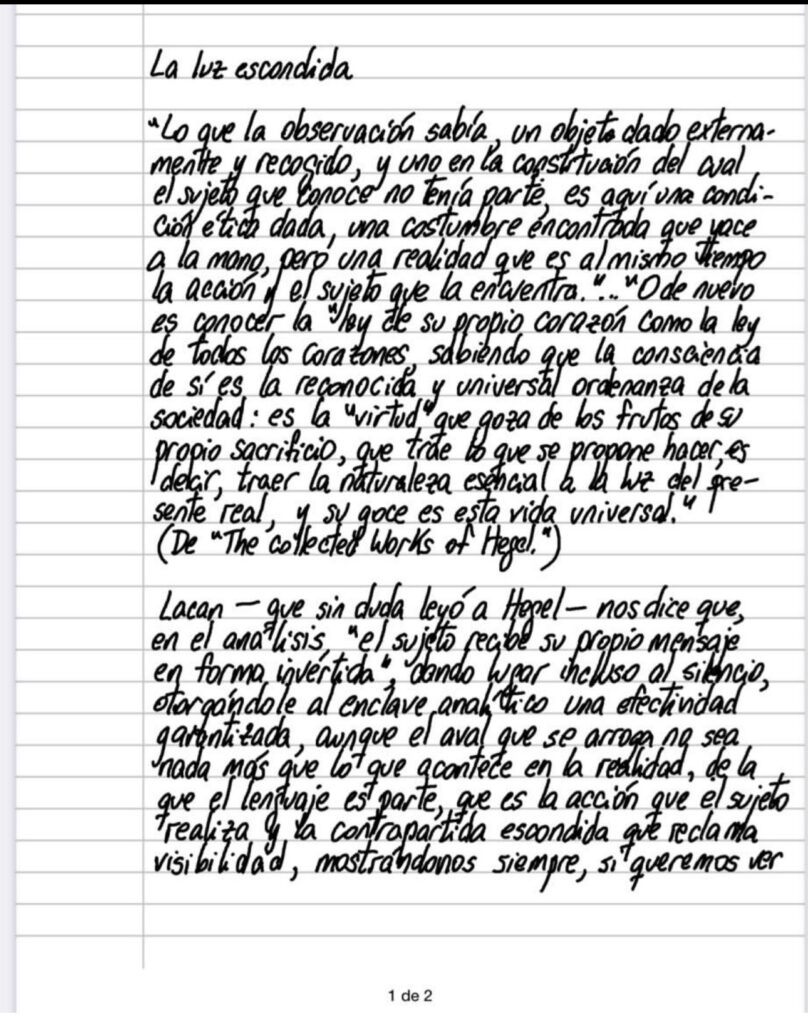 La luz escondida
"Lo que la observación sabía, un objeto dado externa-
mente y recogido, y uno en la constitución del cual
el sujeto que conoce no tenía parte, es aquí una condi-
ción ética dada, una costumbre encontrada que yace
a la mano, pero una realidad que es al mismo tiempo
la acción y el sujeto que la encuentra."..."O de nuevo
es conocer la "ley de su propio corazón como la ley
de todos los corazones, sabiendo que la consciencia
de sí es la reconocida y universal ordenanza de la
sociedad: es la "virtud" que goza de los frutos de su
propio sacrificio, que trae lo que se propone hacer, es
decir, traer la naturaleza esencial a la luz del pre-
sente real, y su goce es esta vida universal."
(De "The collected Works of Hegel.")
Lacan — que sin duda leyó a Hegel — nos dice que,
en el análisis, "el sujeto recibe su propio mensaje
en forma invertida", dando lugar incluso al silencio,
otorgándole al enclave analítico una efectividad
garantizada, aunque el aval que se arroga no sea
nada más que lo que acontece en la realidad, de la
que el lenguaje es parte, que es la acción que el sujeto
realiza y la contrapartida escondida que reclama
visibilidad, mostrándonos siempre, si queremos ver
1 de 2